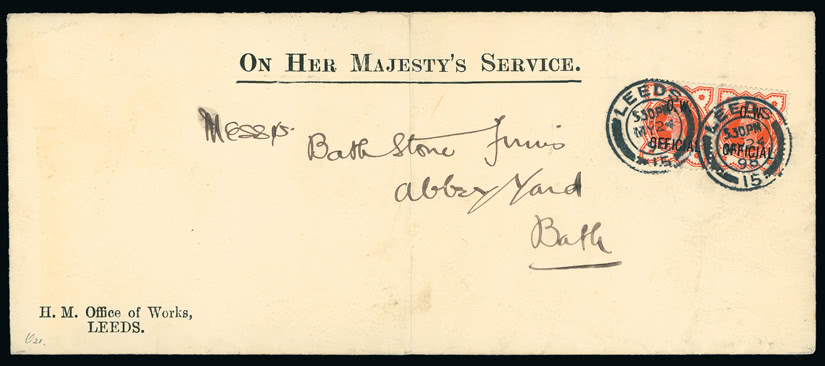 ON HER MAJESTY'S SERVICE.
LEEDS
5.30PM
MY 24
15
O.W.
OFFICIAL
LEEDS
5.30PM
24
98
15
O.W.
OFFICIAL
Messrs.
Bath Stone Firms
Abbey Yard
Bath
H. M. Office of Works,
LEEDS.